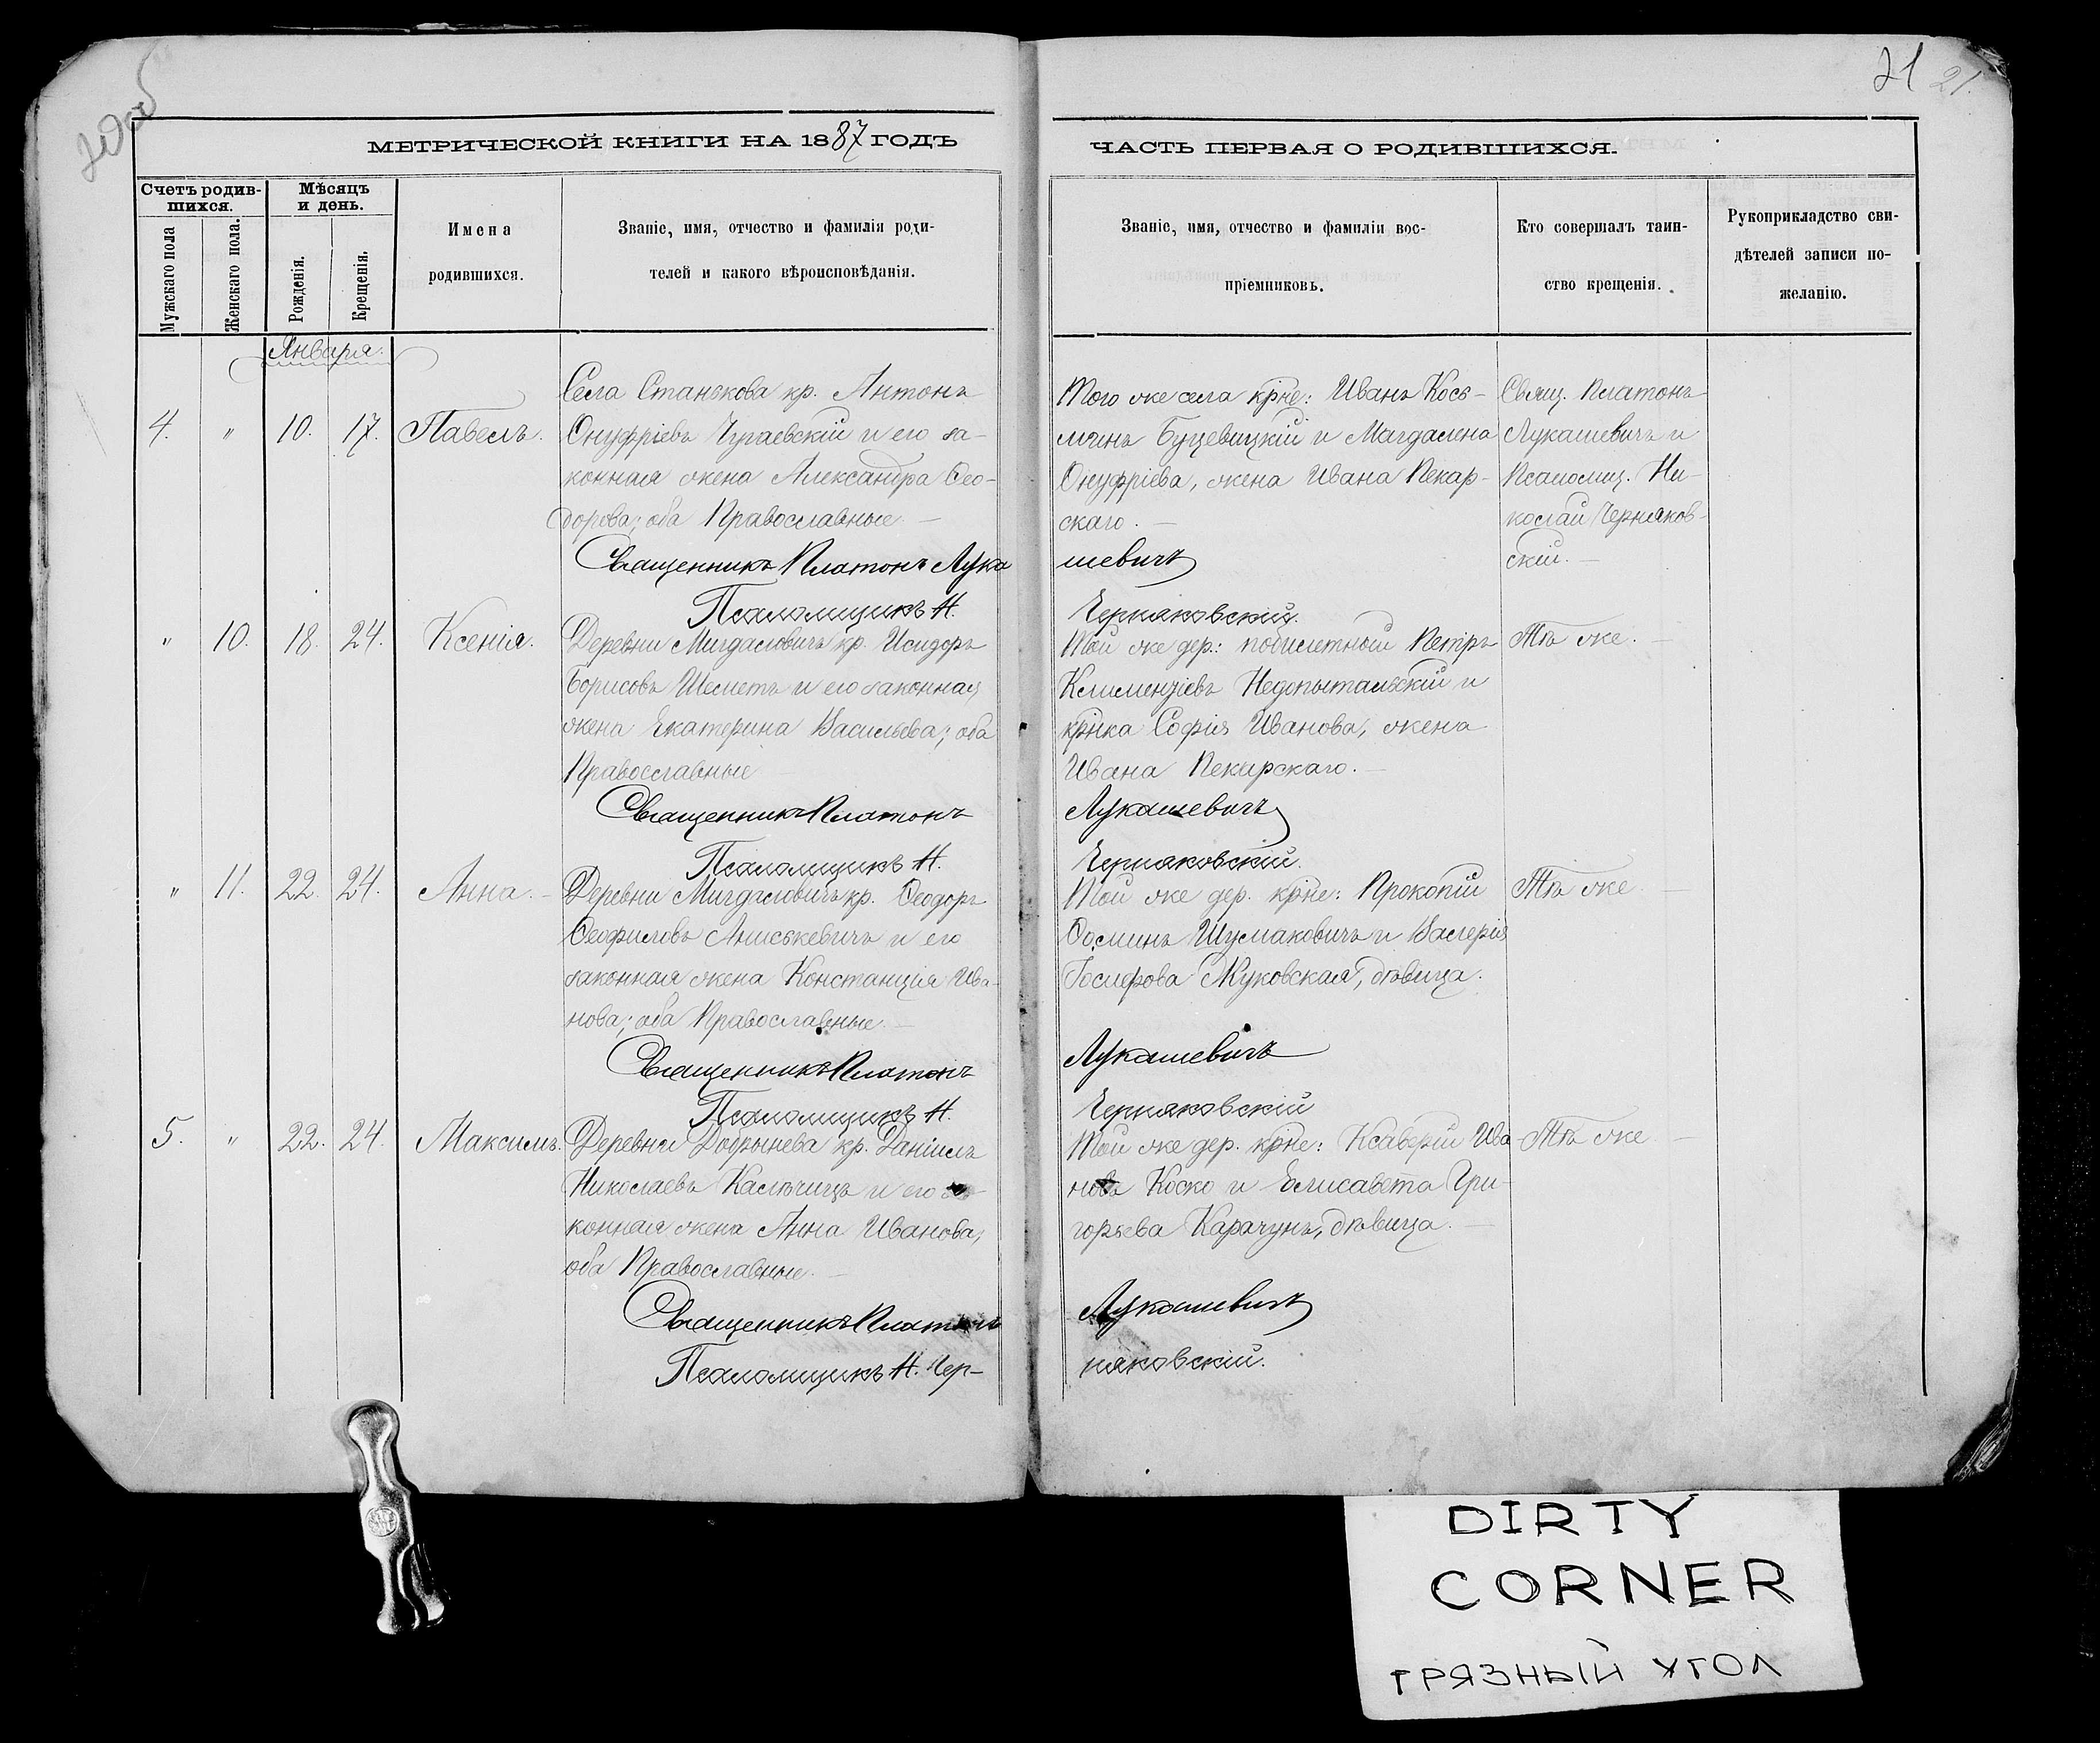 20об
21 21.
МЕТРИЧЕСКОЙ КНИГИ НА 1887 ГОДЪ
ЧАСТЬ ПЕРВАЯ О РОДИВШИХСЯ.
Счетъ родив-
шихся.
Мужскаго пола
Женскаго пола.
Мѣсяцъ
и день.
Рожденія.
Крещенія.
Имена
родившихся.
Званіе, имя, отчество и фамилія роди-
телей и какого вѣроисповѣданія.
Званіе, имя, отчество и фамиліи вос-
пріемниковъ.
Кто совершалъ таин-
ство крещенія.
Рукоприкладство сви-
дѣтелей записи по-
желанію.
Января.
4. " 10. 17. Павелъ.
Села Станькова кр. Антонъ
Онуфріевъ Чугаевскій и его за-
конная жена Александра Ѳео-
дорова; оба Православные. —
Священникъ Платонъ Лука
Псаломщикъ Н.
Того же села кр҃не: Иванъ Кось-
минъ Буцевицкій и Магдалена
Онуфріева, жена Ивана Пекар-
скаго. —
шевичъ
Черняковскій.
Свящ. Платонъ
Лукашевичъ и
Псаломщ. Ни-
колай Черняков-
скій. —
" 10. 18. 24. Ксенія.
Деревни Мигдаловичъ кр. Исидоръ
Борисовъ Шеметъ и его законная
жена Екатерина Васильева; оба
Православные —
Священникъ Платонъ
Псаломщикъ Н.
Той же дер.: побилетный Петръ
Клименціевъ Недопытальскій и
кр҃нка Софія Иванова, жена
Ивана Пекарскаго. —
Лукашевичъ
Черняковскій.
Тѣ же. —
" 11. 22. 24. Анна. —
Деревни Мигдаловичъ кр. Ѳеодоръ
Ѳеофиловъ Аниськевичъ и его
законная жена Констанція Ива-
нова; оба Православные. —
Священникъ Платонъ
Псаломщикъ Н.
Той же дер. кр҃не: Прокопій
Ѳоминъ Шумаковичъ и Валерія
Іосифова Жуковская, дѣвица.
Лукашевичъ
Черняковскій
Тѣ же. —
5. " 22. 24. Максимъ.
Деревни Добрынева кр. Даніилъ
Николаевъ Калѣчицъ и его за-
конная жена Анна Иванова,
оба Православные. —
Священникъ Платонъ
Псаломщикъ Н. Чер-
Той же дер. кр҃не: Ксаверій Ива
новъ Коско и Елисавета Гри-
горьева Карачунъ, дѣвица. —
Лукашевичъ
няковскій.
Тѣ же —
DIRTY
CORNER
ГРЯЗНЫЙ УГОЛ